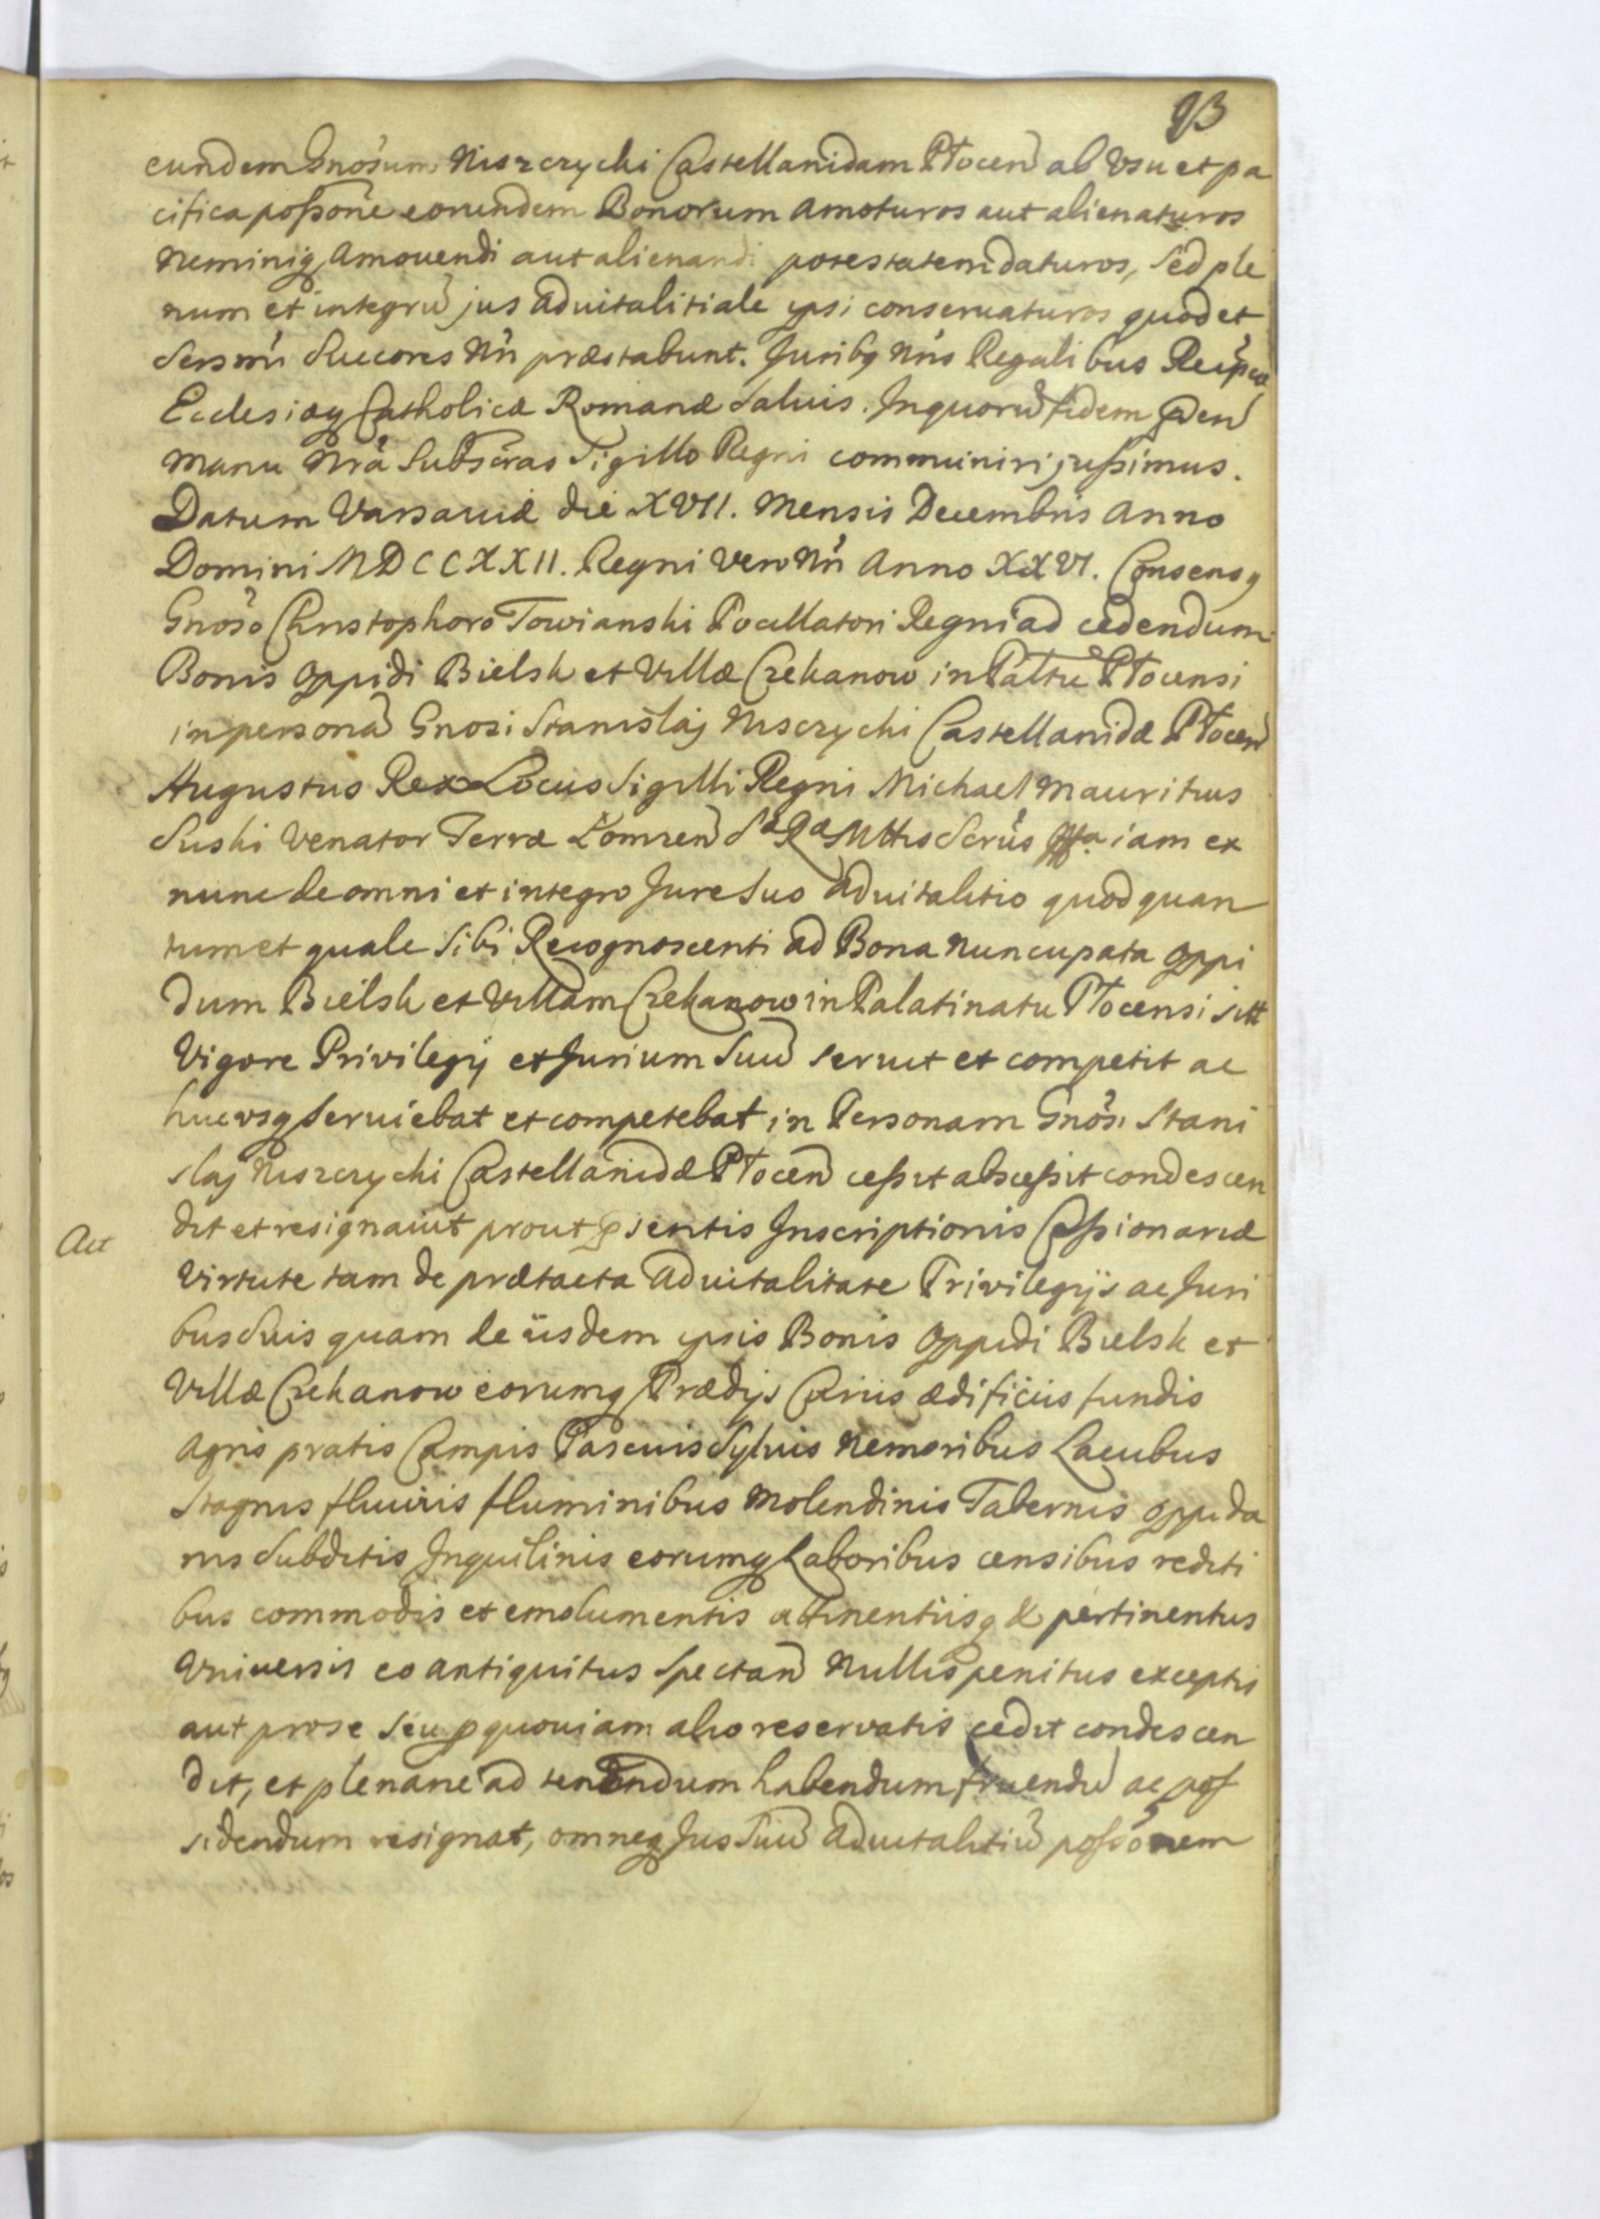 93
eundem Gnosum Niszczycki Castellanidam Płocen ab Vsu et pa
cifica possone eorundem Bonorum amoturos aut alienaturos
Neminiq amouendi aut alienandi potestatem daturos, Sed ple
num et integru jus aduitalitiale ipsi conseruaturos quod et
Sersmi Succores Nri præstabunt. Juribq Nris Regalibus Reipcæ
Ecclesiæq Catholicæ Romanæ Saluis. In quoru fidem pden
manu Nra Subscras Sigillo Regni communiri jussimus.
Datum Varsauiæ die XVII. Mensis Decembris Anno
Domini MDCCXXII. Regni Vero Nri Anno XXVI. Consensq
Gnoso Christophoro Towianski Pocillatori Regni ad cedendum
Bonis Oppidi Bielsk et Villæ Czekanow in Paltu Płocensi
in persona Gnosi Stanislaj Nisczycki Castellanidæ Płocen
Augustus Rex Locus Sigilli Regni Michael Mauritius
Suski Venator Terræ Łomzen S R Mttis Scrius iam ex
nunc de omni et integro Jure Suo aduitalitio quod quan
tum et quale Sibi Recognoscenti ad Bona nuncupata Oppi
dum Bielsk et Villam Czekanow in Palatinatu Płocensi sitt
Vigore Privilegij et Jurium Suu seruit et competit ac
hucvsq seruiebat et competebat in Personam Gnosi Stani
slaj Niszczycki Castellanidæ Płocen cessit abscessit condescen
Act
dit et resignauit prout psentis Inscriptionis Cessionariæ
Virtute tam de prætacta aduitalitate Privilegijs ac Juri
bus Suis quam de iisdem ipsis Bonis Oppidi Bielsk et
Villæ Czekanow eorumq Prædijs Curiis ædificiis fundis
agris pratis Campis Pascuis Syluis Nemoribus Lacubus
Stagnis fluuiis fluminibus Molendinis Tabernis Oppida
nis Subditis Inquilinis eorumq Laboribus censibus rediti
bus commodis et emolumentis attinentiisq & pertinentiis
Vniuersis eo antiquitus Spectan Nullis penitus exceptis
aut pro se seu p quouiam alio reservatis cedit condescen
dit, et plenarie ad tenendum habendum fruendu ac pos
sidendum resignat, omneq Jus Suu aduitalitiu possonem